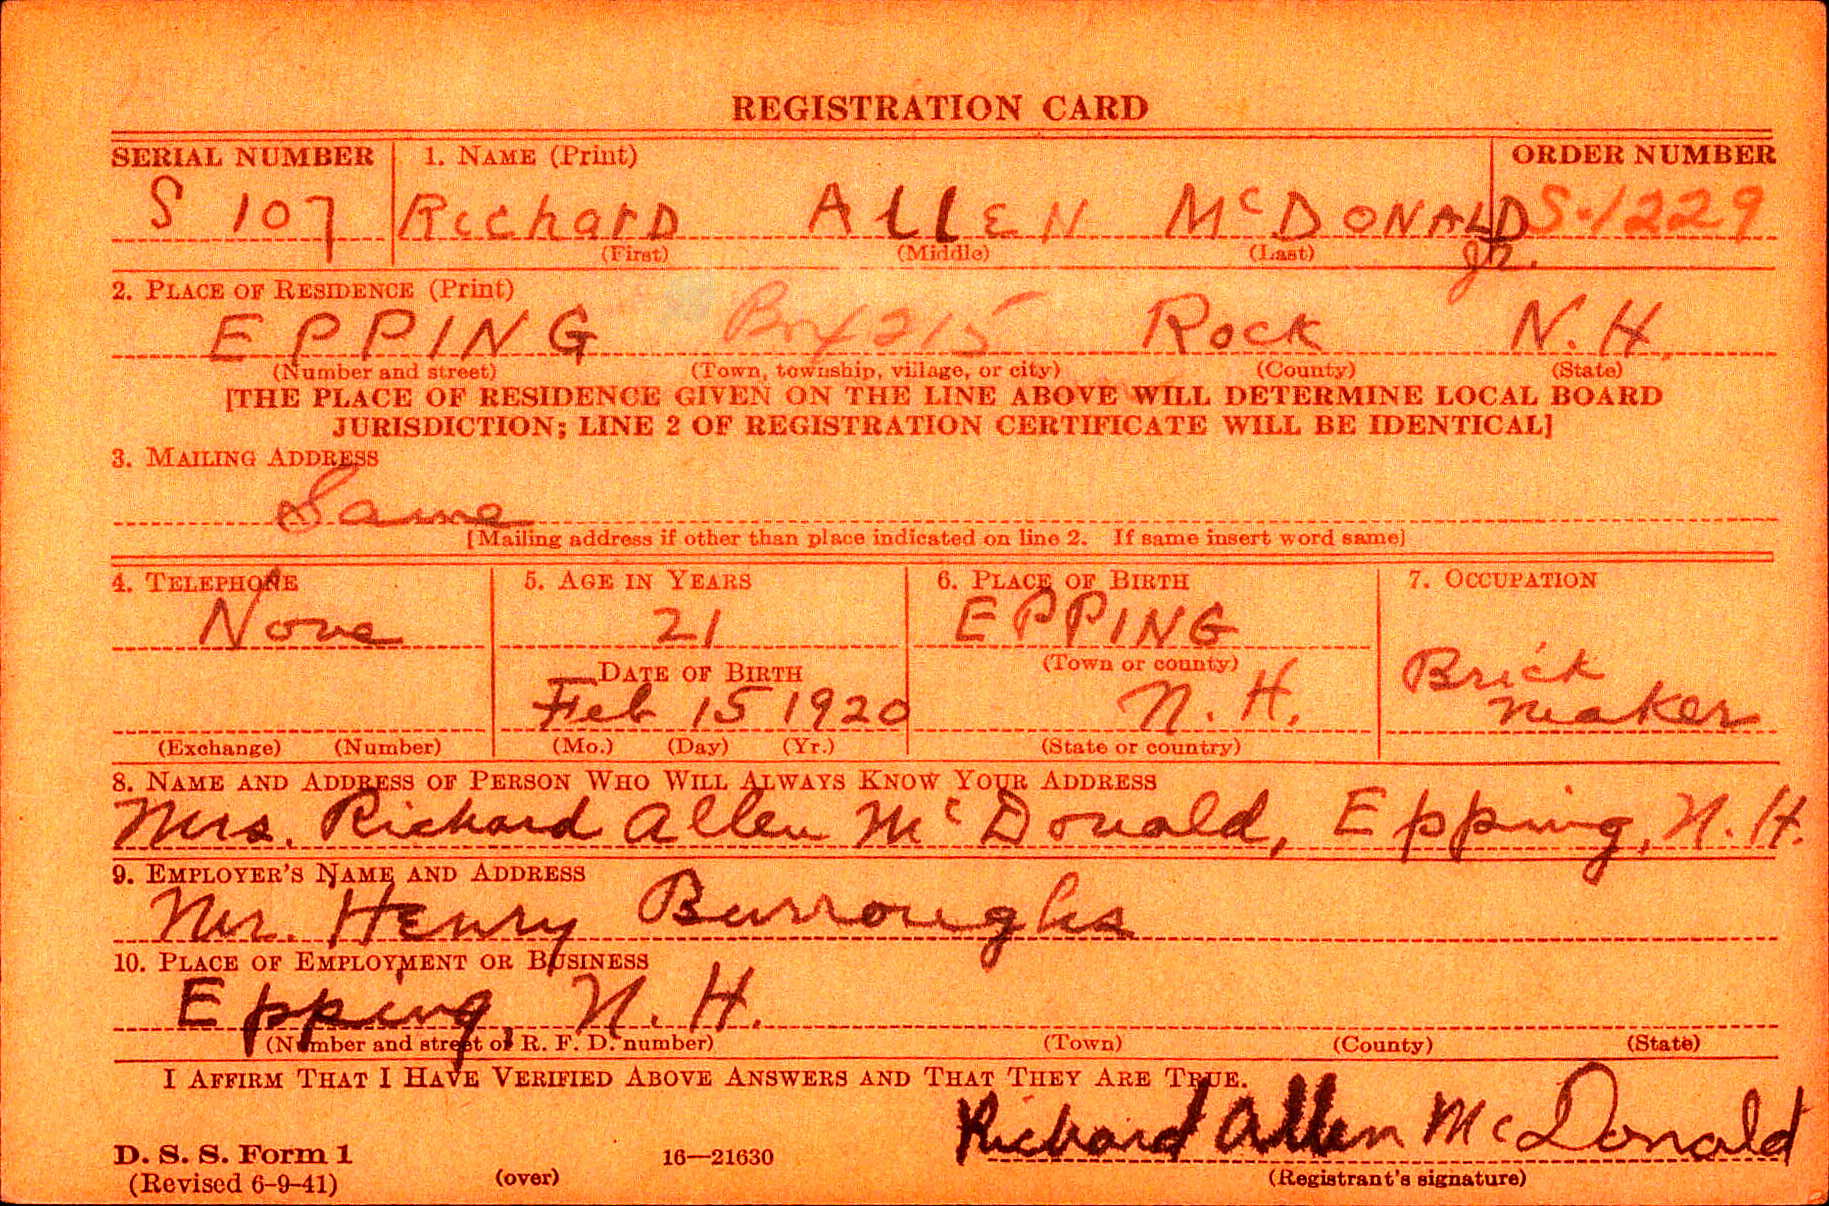 REGISTRATION CARD
SERIAL NUMBER 1. NAME (Print) ORDER NUMBER
S 107 RicharD ALLEN McDONALD S-1229
(First) (Middle) (Last) Jr.
2. PLACE OF RESIDENCE (Print)
EPPING Box 215 Rock N.H.
(Number and street) (Town, township, village, or city) (County) (State)
[THE PLACE OF RESIDENCE GIVEN ON THE LINE ABOVE WILL DETERMINE LOCAL BOARD
JURISDICTION; LINE 2 OF REGISTRATION CERTIFICATE WILL BE IDENTICAL]
3. MAILING ADDRESS
Same
[Mailing address if other than place indicated on line 2. If same insert word same]
4. TELEPHONE 5. AGE IN YEARS 6. PLACE OF BIRTH 7. OCCUPATION
None 21 EPPING
DATE OF BIRTH (Town or county) Brick
Feb 15 1920 N.H. Maker
(Exchange) (Number) (Mo.) (Day) (Yr.) (State or country)
8. NAME AND ADDRESS OF PERSON WHO WILL ALWAYS KNOW YOUR ADDRESS
Mrs. Richard Allen McDonald, Epping, N.H.
9. EMPLOYER'S NAME AND ADDRESS
Mr. Henry Burroughs
10. PLACE OF EMPLOYMENT OR BUSINESS
Epping, N.H.
(Number and street or R. F. D. number) (Town) (County) (State)
I AFFIRM THAT I HAVE VERIFIED ABOVE ANSWERS AND THAT THEY ARE TRUE.
Richard Allen McDonald
D. S. S. Form 1
(Revised 6-9-41) (over) 16—21630 (Registrant's signature)